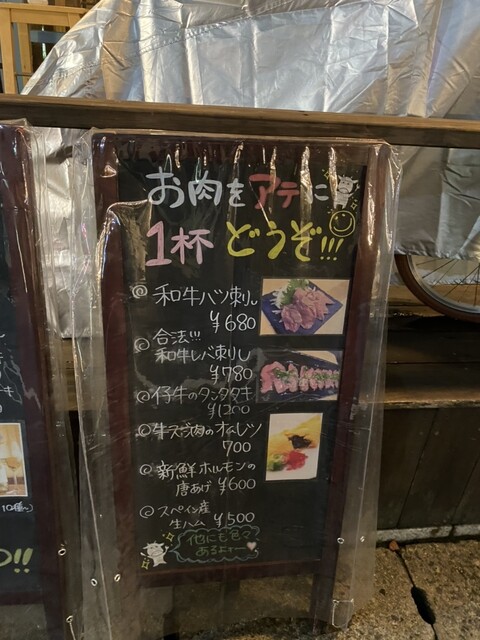 お肉をアテに
1杯どうぞ!!!
◎和牛ハツ刺し
¥680
◎合法!!!
和牛レバ刺し
¥780
◎仔牛のタンタタキ
¥1200
◎牛スジ肉のオムレツ
700
◎新鮮ホルモンの
唐あげ ¥600
◎スペイン産
生ハム ¥500
他にも色々
あるよォー
!!